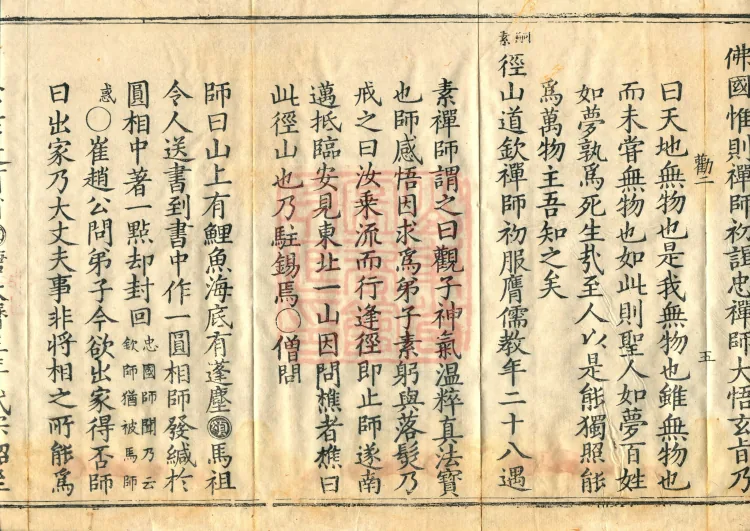 佛國惟則禪師初謁忠禪師大悟玄旨乃
勸二
五
曰天地無物也是我無物也雖無物也
而未嘗無物也如此則聖人如夢百姓
如夢孰為死生㢤至人以是能獨照能
為萬物主吾知之矣
素
徑山道欽禪師初服膺儒教年二十八遇
素禪師謂之曰觀子神氣溫粹真法寶
也師感悟因求為弟子素躬與落髮乃
戒之曰汝乘流而行逢徑即止師遂南
邁抵臨安見東北一山因問樵者樵曰
此徑山也乃駐錫焉〇僧問
師曰山上有鯉魚海底有蓬塵馬祖
令人送書到書中作一圓相師發緘於
圓相中著一點却封回忠國師聞乃云
欽師猶被馬師
惑〇崔趙公問弟子今欲出家得否師
曰出家乃大丈夫事非將相之所能為